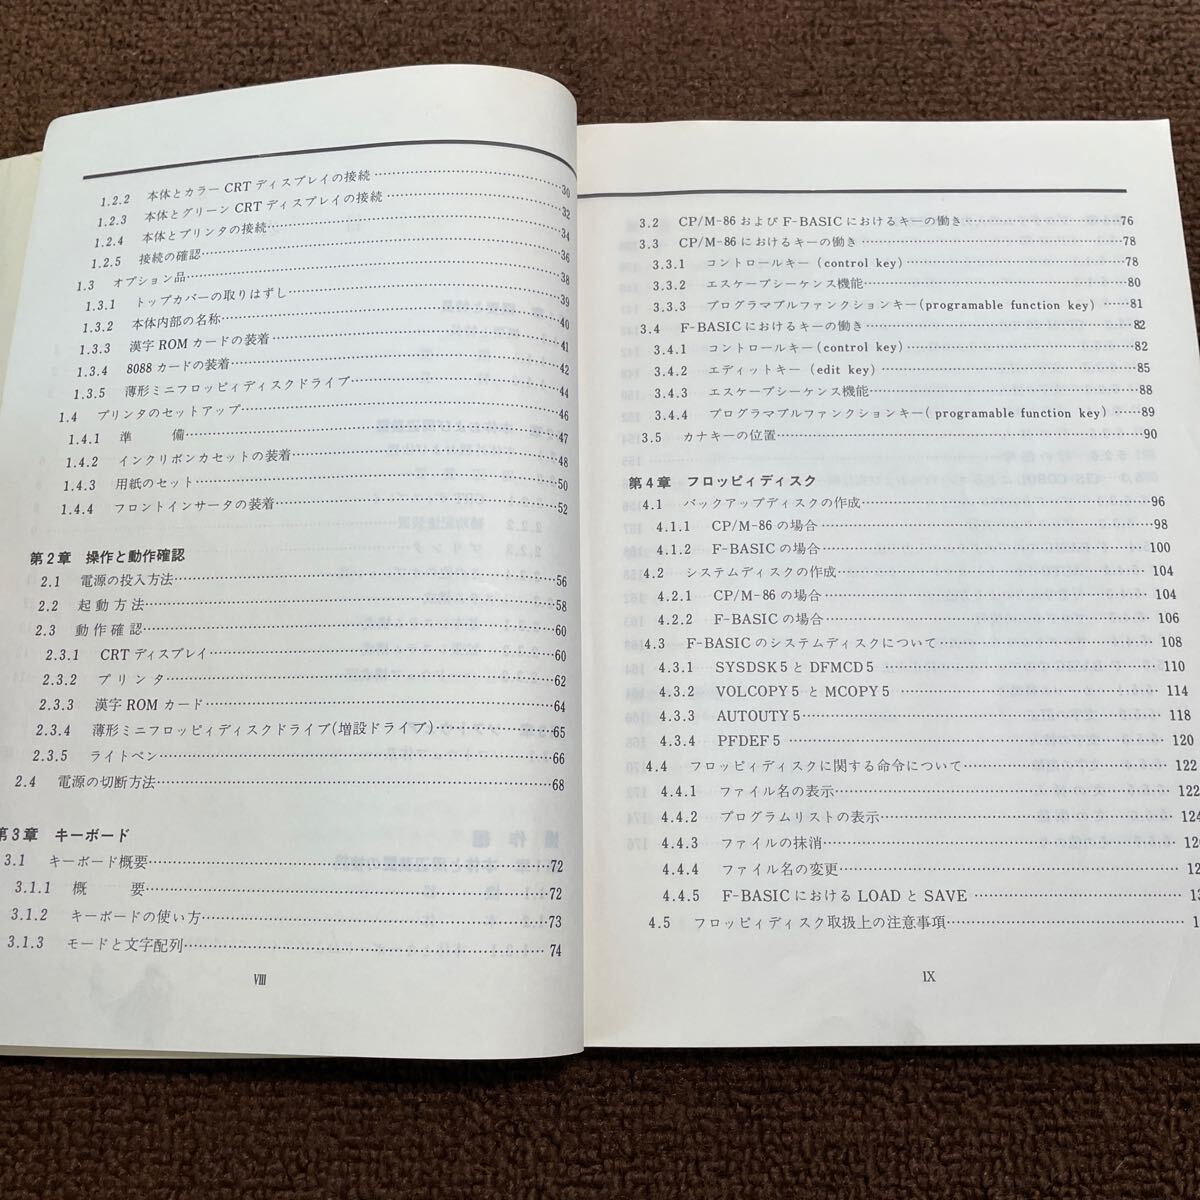 1.2.2 本体とカラー CRT ディスプレイの接続……30
1.2.3 本体とグリーン CRT ディスプレイの接続……32
1.2.4 本体とプリンタの接続……34
1.2.5 接続の確認……36
1.3 オプション品……38
1.3.1 トップカバーの取りはずし……39
1.3.2 本体内部の名称……40
1.3.3 漢字 ROM カードの装着……41
1.3.4 8088 カードの装着……42
1.3.5 薄形ミニフロッピィディスクドライブ……44
1.4 プリンタのセットアップ……46
1.4.1 準 備……47
1.4.2 インクリボンカセットの装着……48
1.4.3 用紙のセット……50
1.4.4 フロントインサータの装着……52
第2章 操作と動作確認
2.1 電源の投入方法……56
2.2 起動方法……58
2.3 動作確認……60
2.3.1 CRT ディスプレイ……60
2.3.2 プリンタ……62
2.3.3 漢字 ROM カード……64
2.3.4 薄形ミニフロッピィディスクドライブ(増設ドライブ)……65
2.3.5 ライトペン……66
2.4 電源の切断方法……68
第3章 キーボード
3.1 キーボード概要……72
3.1.1 概 要……72
3.1.2 キーボードの使い方……73
3.1.3 モードと文字配列……74
Ⅷ
3.2 CP/M-86 および F-BASIC におけるキーの働き……76
3.3 CP/M-86 におけるキーの働き……78
3.3.1 コントロールキー (control key)……78
3.3.2 エスケープシーケンス機能……80
3.3.3 プログラマブルファンクションキー(programable function key)……81
3.4 F-BASIC におけるキーの働き……82
3.4.1 コントロールキー (control key)……82
3.4.2 エディットキー (edit key)……85
3.4.3 エスケープシーケンス機能……88
3.4.4 プログラマブルファンクションキー( programable function key)……89
3.5 カナキーの位置……90
第4章 フロッピィディスク
4.1 バックアップディスクの作成……96
4.1.1 CP/M-86 の場合……98
4.1.2 F-BASIC の場合……100
4.2 システムディスクの作成……104
4.2.1 CP/M-86 の場合……104
4.2.2 F-BASIC の場合……106
4.3 F-BASIC のシステムディスクについて……108
4.3.1 SYSDSK 5 と DFMCD 5……110
4.3.2 VOLCOPY 5 と MCOPY 5……114
4.3.3 AUTOUTY 5……118
4.3.4 PFDEF 5……120
4.4 フロッピィディスクに関する命令について……122
4.4.1 ファイル名の表示……122
4.4.2 プログラムリストの表示……124
4.4.3 ファイルの抹消……
4.4.4 ファイル名の変更……
4.4.5 F-BASIC における LOAD と SAVE……
4.5 フロッピィディスク取扱上の注意事項……
Ⅸ